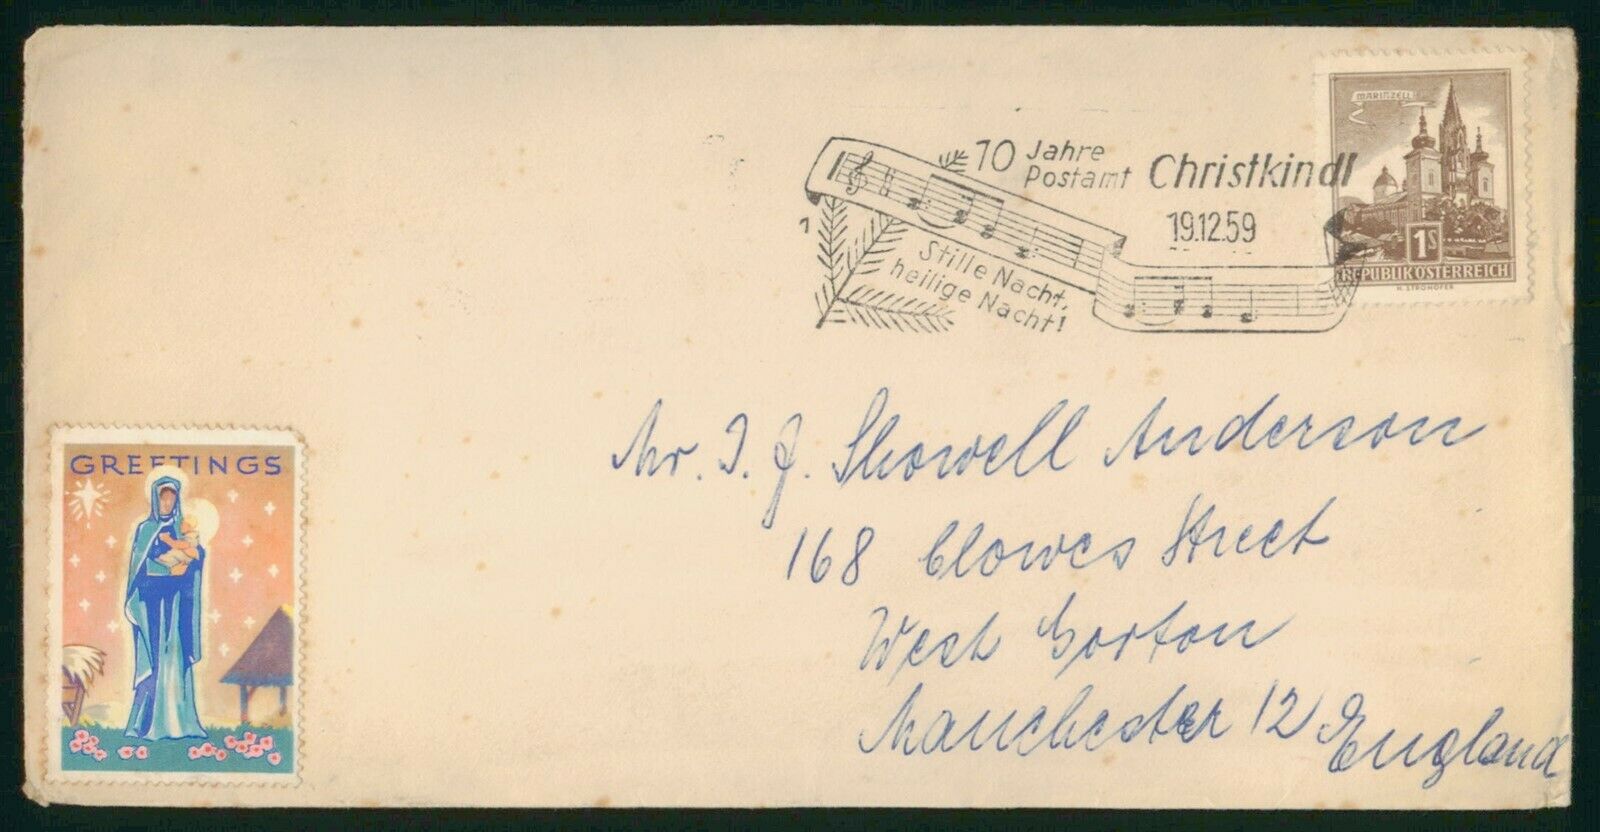 10 Jahre
Postamt Christkindl
19.12.59
1
Stille Nacht,
heilige Nacht!
MARIAZELL
1S
REPUBLIK ÖSTERREICH
H. STROHOFER
GREETINGS
Mr. I. J. Showell Anderson
168 Clowes Street
West Gorton
Manchester 12
England